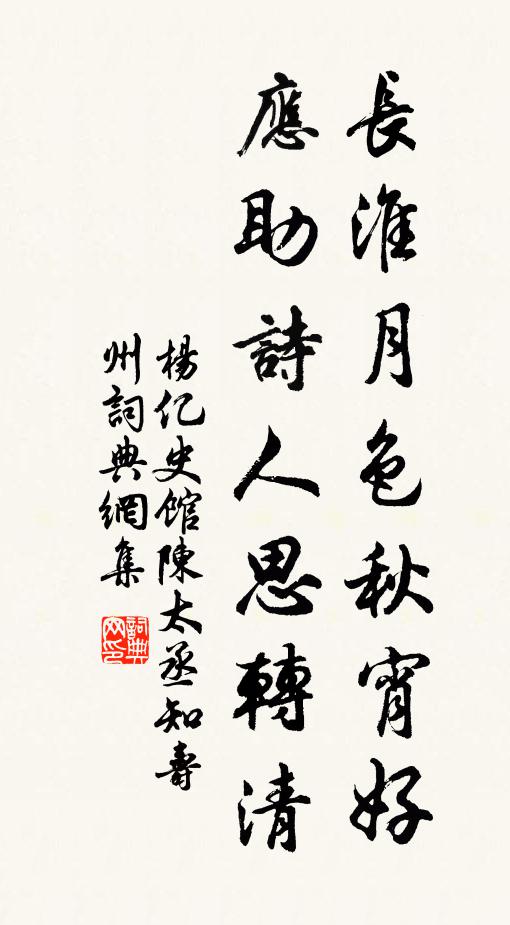 長淮月色秋宵好
應助詩人思轉清
楊亿史館陳太丞知壽
州詞典網集
詞典
网印